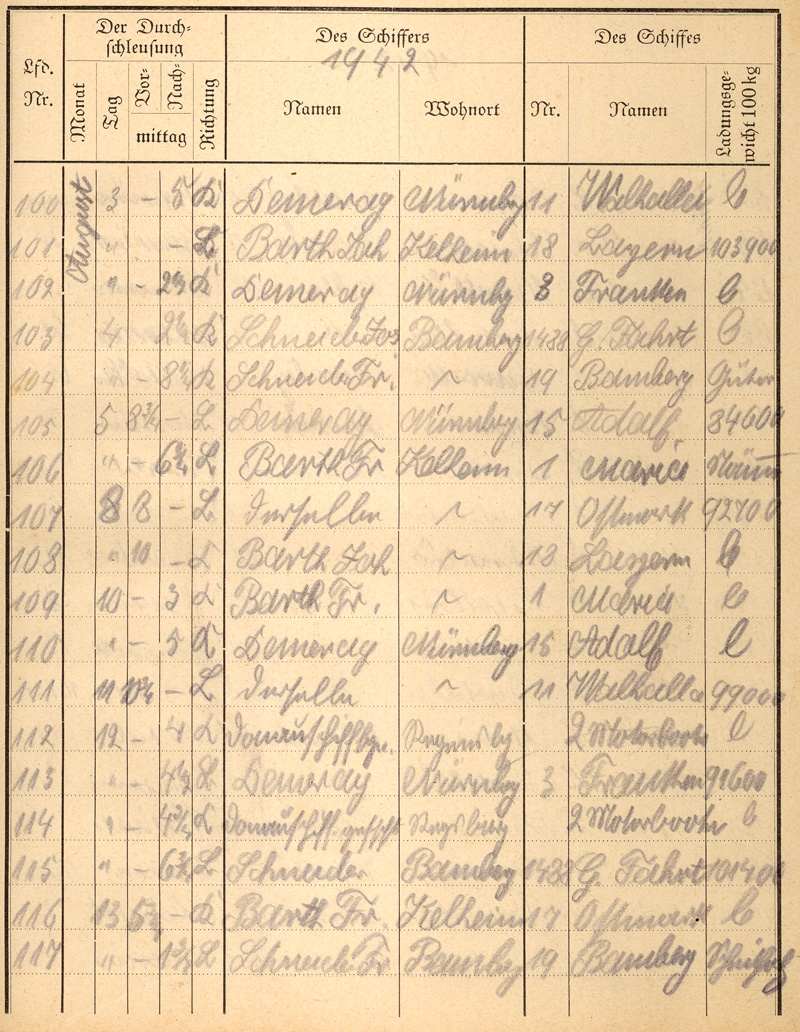 Lfd. Nr.
Der Durch-
schleusung
Monat
Tag
Vor-
Nach-
mittag
Richtung
Des Schiffers
1942
Namen
Wohnort
Des Schiffes
Nr.
Namen
Ladungsge-
wicht 100 kg
August
100 3 – 5 K Demerag Nürnbg 11 Walhalla l
101 " – L Barth Joh Kelheim 18 Bayern 103900
102 " – 2½ K Demerag Nürnbg 3 Franken l
103 4 2½ K Schneider Jos Bamberg 1438 G. Fahrt l
104 – 8½ K Schneider Fr. " 19 Bamberg Güter
105 5 8¾ – L Demerag Nürnbg 15 Adolf 84600
106 " – L Barth Fr Kelheim 1 Maria
107 8 8 – L derselbe " 17 Ostmark 92700
108 " 10 – Barth Joh " 18 Bayern l
109 10 – 3 K Barth Fr. " 1 Maria l
110 " – 5 K Demerag Nürnberg 15 Adolf l
111 11 – L derselbe " 11 Walhalla 99000
112 12 – 4 Regensbg 2 Motorboote l
113 " – 4½ Demerag Nürnbg 3 Franken 91600
114 " – Regsburg 2 Motorboote l
115 " – L Schneider Bamberg 1438 G. Fahrt 101400
116 13 – K Barth Fr. Kelheim 17 Ostmark l
117 " – L Schneider Fr Bambg 19 Bamberg